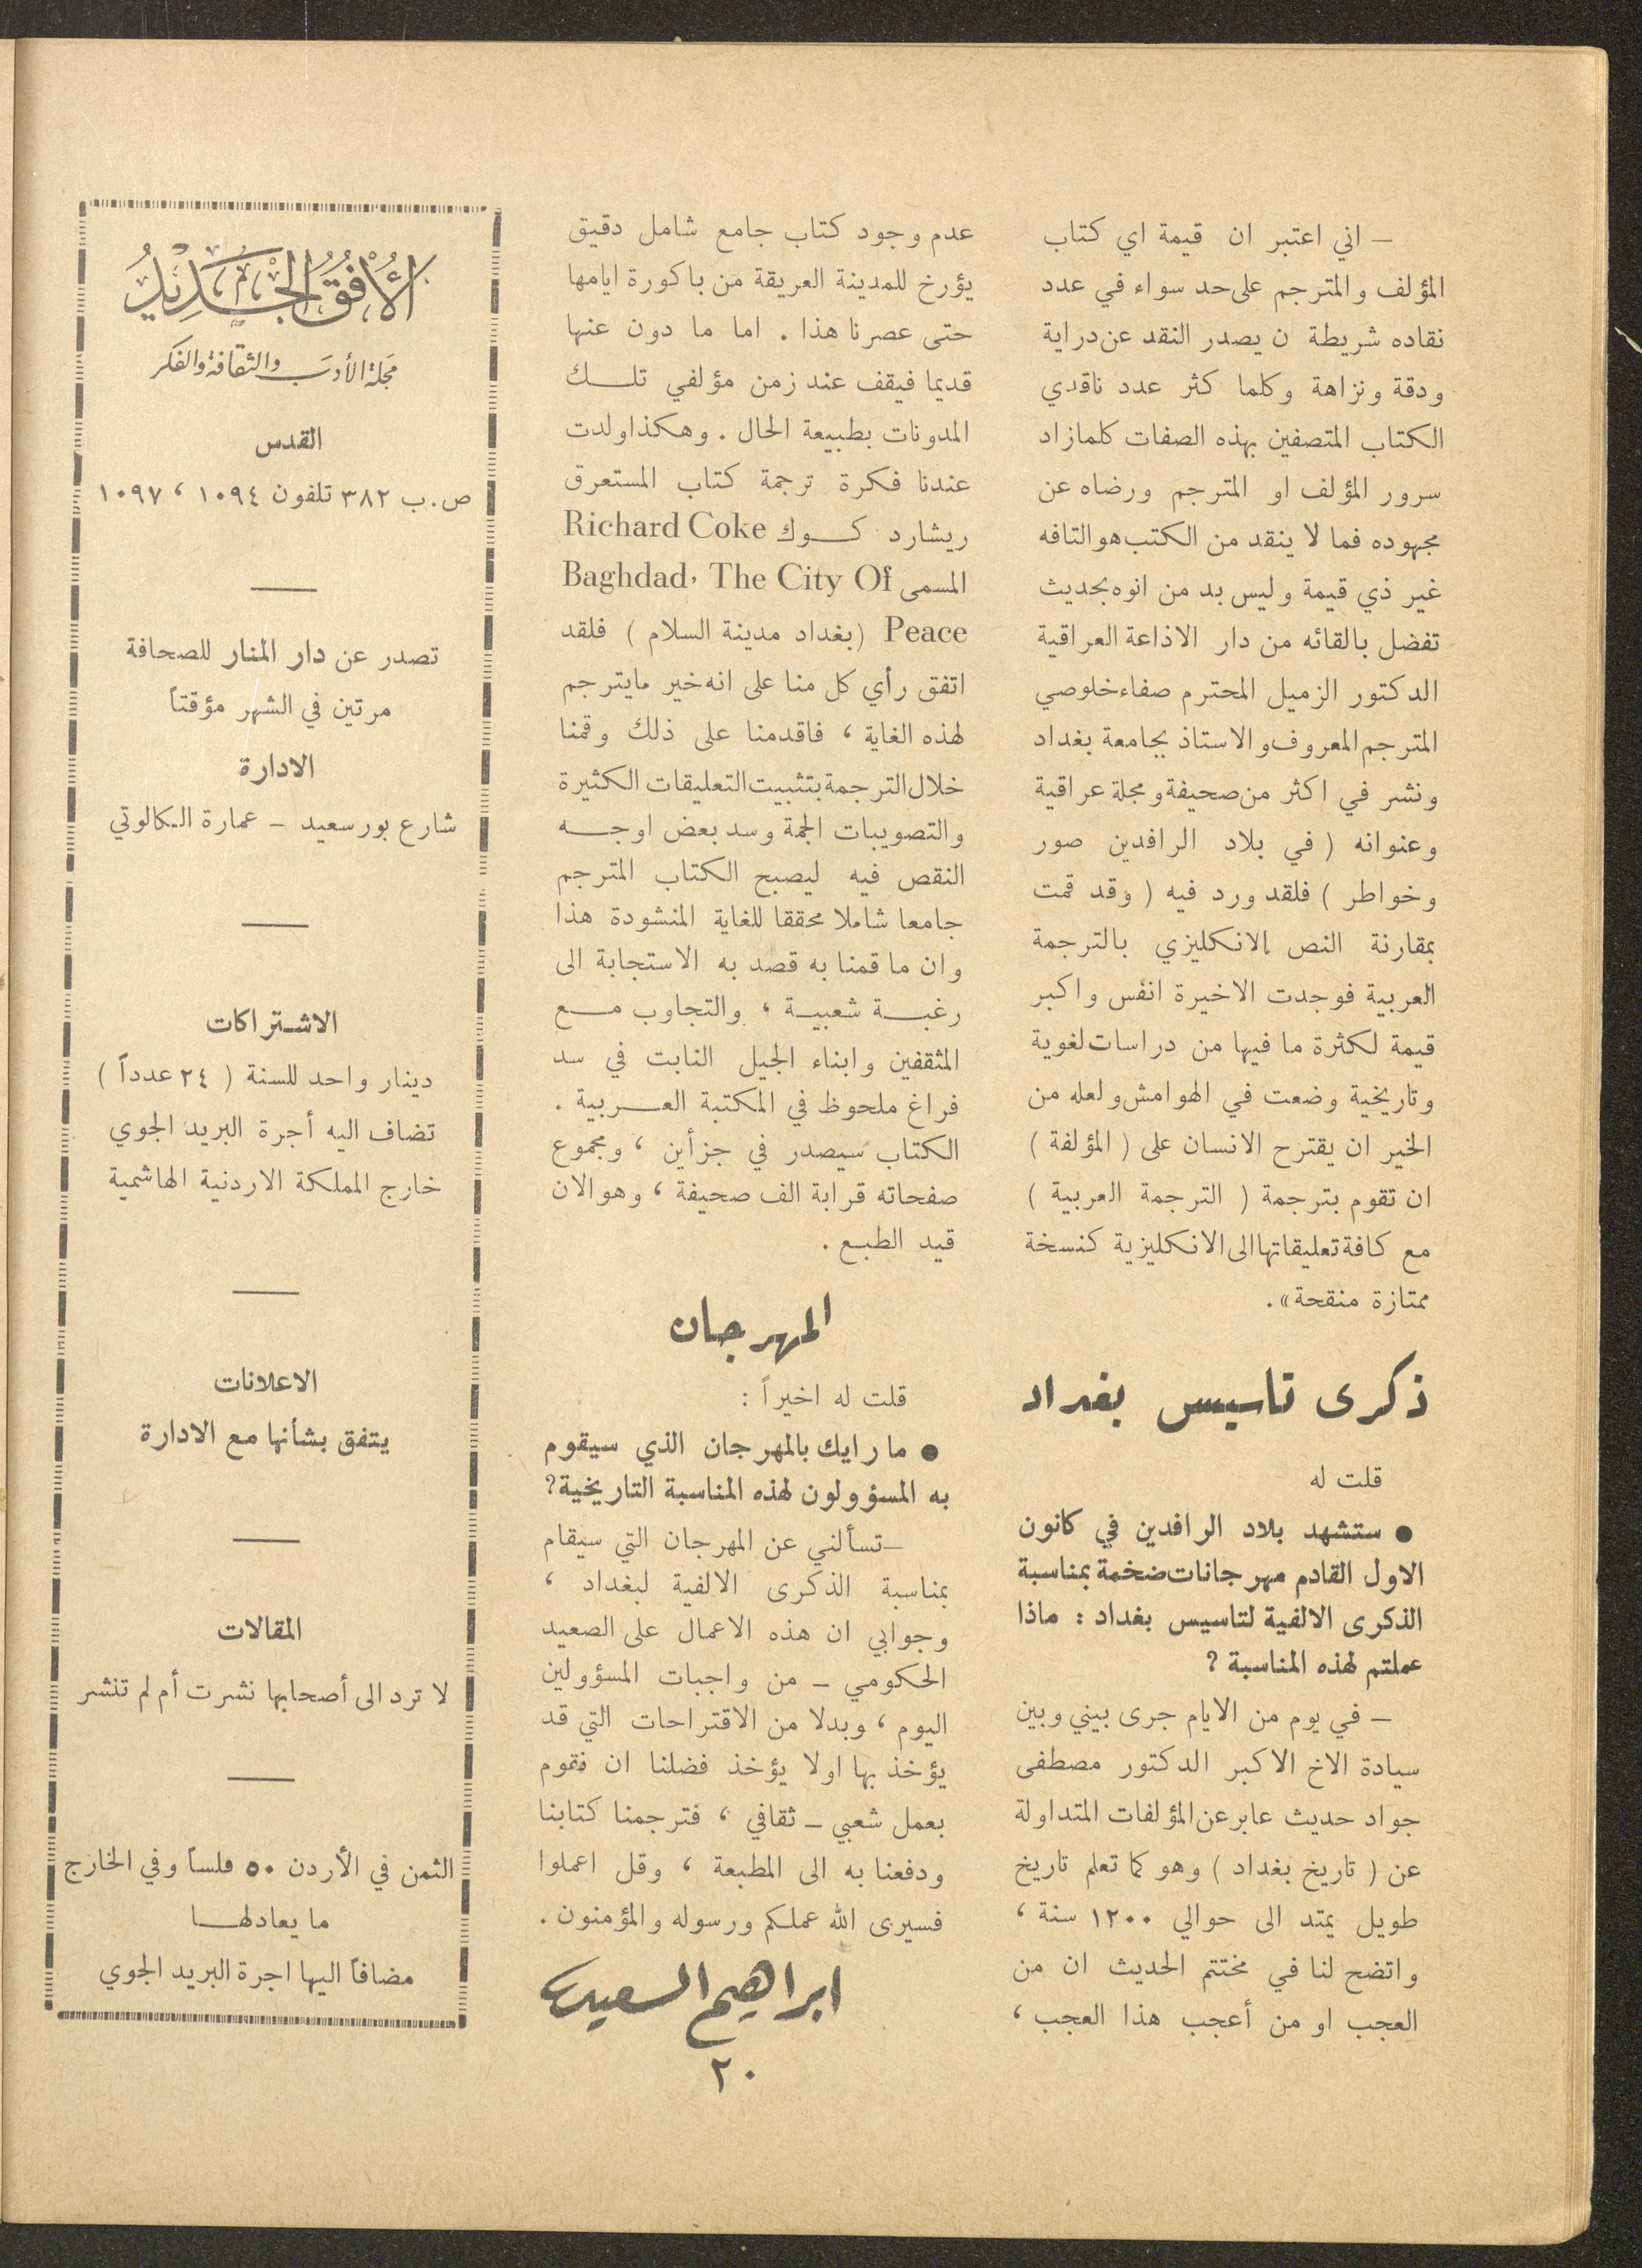 – اني اعتبر ان قيمة اي كتاب
المؤلف والمترجم على حد سواء في عدد
نقاده شريطة ن يصدر النقد عن دراية
ودقة ونزاهة وكلما كثر عدد ناقدي
الكتاب المتصفين بهذه الصفات كلما زاد
سرور المؤلف او المترجم ورضاه عن
مجهوده فما لا ينقد من الكتب هو التافه
غير ذي قيمة وليس بد من انوه بحديث
تفضل بالقائه من دار الاذاعة العراقية
الدكتور الزميل المحترم صفاء خلوصي
المترجم المعروف والاستاذ بجامعة بغداد
ونشر في اكثر من صحيفة ومجلة عراقية
وعنوانه ( في بلاد الرافدين صور
وخواطر ) فلقد ورد فيه ( وقد قمت
بمقارنة النص الانكليزي بالترجمة
العربية فوجدت الاخيرة انفس واكبر
قيمة لكثرة ما فيها من دراسات لغوية
وتاريخية وضعت في الهوامش ولعله من
الخير ان يقترح الانسان على ( المؤلفة )
ان تقوم بترجمة ( الترجمة العربية )
مع كافة تعليقاتها الى الانكليزية كنسخة
ممتازة منقحة» .
ذكرى تاسيس بغداد
قلت له
● ستشهد بلاد الرافدين في كانون
الاول القادم مهرجانات ضخمة بمناسبة
الذكرى الالفية لتاسيس بغداد : ماذا
عملتم لهذه المناسبة ؟
– في يوم من الايام جرى بيني وبين
سيادة الاخ الاكبر الدكتور مصطفى
جواد حديث عابر عن المؤلفات المتداولة
عن ( تاريخ بغداد ) وهو كما تعلم تاريخ
طويل يمتد الى حوالي ١٢٠٠ سنة ،
واتضح لنا في مختتم الحديث ان من
العجب او من أعجب هذا العجب ،
عدم وجود كتاب جامع شامل دقيق
يؤرخ للمدينة العريقة من باكورة ايامها
حتى عصرنا هذا . اما ما دون عنها
قديما فيقف عند زمن مؤلفي تلك
المدونات بطبيعة الحال . وهكذا ولدت
عندنا فكرة ترجمة كتاب المستعرق
ريشارد كوك Richard Coke
المسمى Baghdad, The City Of
Peace (بغداد مدينة السلام ) فلقد
اتفق رأي كل منا على انه خير ما يترجم
لهذه الغاية ، فاقدمنا على ذلك وقمنا
خلال الترجمة بتثبيت التعليقات الكثيرة
والتصويبات الجمة وسد بعض اوجه
النقص فيه ليصبح الكتاب المترجم
جامعا شاملا محققا للغاية المنشودة هذا
وان ما قمنا به قصد به الاستجابة الى
رغبة شعبية ، والتجاوب مع
المثقفين وابناء الجيل النابت في سد
فراغ ملحوظ في المكتبة العربية .
الكتاب سيصدر في جزأين ، ومجموع
صفحاته قرابة الف صحيفة ، وهو الان
قيد الطبع .
المهرجان
قلت له اخيراً :
● ما رايك بالمهرجان الذي سيقوم
به المسؤولون لهذه المناسبة التاريخية؟
– تسألني عن المهرجان التي سيقام
بمناسبة الذكرى الالفية لبغداد ،
وجوابي ان هذه الاعمال على الصعيد
الحكومي – من واجبات المسؤولين
اليوم ، وبدلا من الاقتراحات التي قد
يؤخذ بها اولا يؤخذ فضلنا ان نقوم
بعمل شعبي – ثقافي ، فترجمنا كتابنا
ودفعنا به الى المطبعة ، وقل اعملوا
فسيرى الله عملكم ورسوله والمؤمنون .
ابراهيم السعيد
٢٠
الأفق الجديد
مجلة الأدب والثقافة والفكر
القدس
ص.ب ٣٨٢ تلفون ١٠٩٤ ، ١٠٩٧
تصدر عن دار المنار للصحافة
مرتين في الشهر مؤقتاً
الادارة
شارع بور سعيد – عمارة الكالوتي
الاشتراكات
دينار واحد للسنة ( ٢٤ عدداً )
تضاف اليه أجرة البريد الجوي
خارج المملكة الاردنية الهاشمية
الاعلانات
يتفق بشأنها مع الادارة
المقالات
لا ترد الى أصحابها نشرت أم لم تنشر
الثمن في الأردن ٥٠ فلساً وفي الخارج
ما يعادلها
مضافاً اليها اجرة البريد الجوي